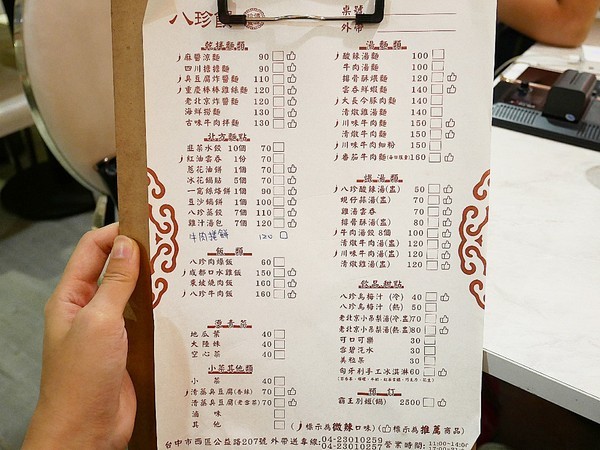 八珍
桌號
外帶
乾拌麵類
麻醬涼麵 90
四川擔擔麵 90
臭豆腐炸醬麵 110
重慶棒棒雞絲麵 120
老北京炸醬麵 120
海鮮撈麵 130
古味牛肉拌麵 130
北方麵點
韭菜水餃 10個 70
紅油雲吞 1份 70
蔥花油餅 1個 70
冰花鍋貼 5個 70
一窩絲烙餅 1個 90
豆沙鍋餅 1個 100
八珍蒸餃 7個 110
雞汁湯包 7個 120
牛肉捲餅 120
飯類
八珍肉燥飯 60
成都口水雞飯 150
東坡燒肉飯 160
八珍牛肉飯 160
燙青菜
地瓜葉 40
大陸妹 40
空心菜 40
小菜其他類
小菜 40
清蒸臭豆腐(香辣) 70
清蒸臭豆腐(老雪菜) 70
滷味
其他
湯麵類
酸辣湯麵 100
牛肉湯麵 100
排骨酥煨麵 120
雲吞鮮蝦麵 140
大長今豚肉麵 140
清燉雞湯麵 140
川味牛肉麵 150
清燉牛肉麵 150
川味牛肉細粉 150
番茄牛肉麵 160
煨湯類
八珍酸辣湯(盅) 50
蜆仔蒜湯(盅) 70
雞湯雲吞 70
排骨酥湯(盅) 80
牛肉湯餃 8個 100
清燉牛肉湯(盅) 120
川味牛肉湯(盅) 120
清燉雞湯(盅) 120
飲品甜點
八珍烏梅汁 (冷) 40
八珍烏梅汁 (熱) 50
老北京小吊梨湯(冷.盅) 70
老北京小吊梨湯(熱.盅) 80
可口可樂 30
雪碧汽水 30
美粒果 30
匈牙利手工冰淇淋 60
預訂
霸王別姬(鍋) 2500
(標示為微辣口味) (標示為推薦商品)
台中市西區公益路207號 外帶送專線: 04-23010259 營業時間: 11:00~14:0
04-23010257